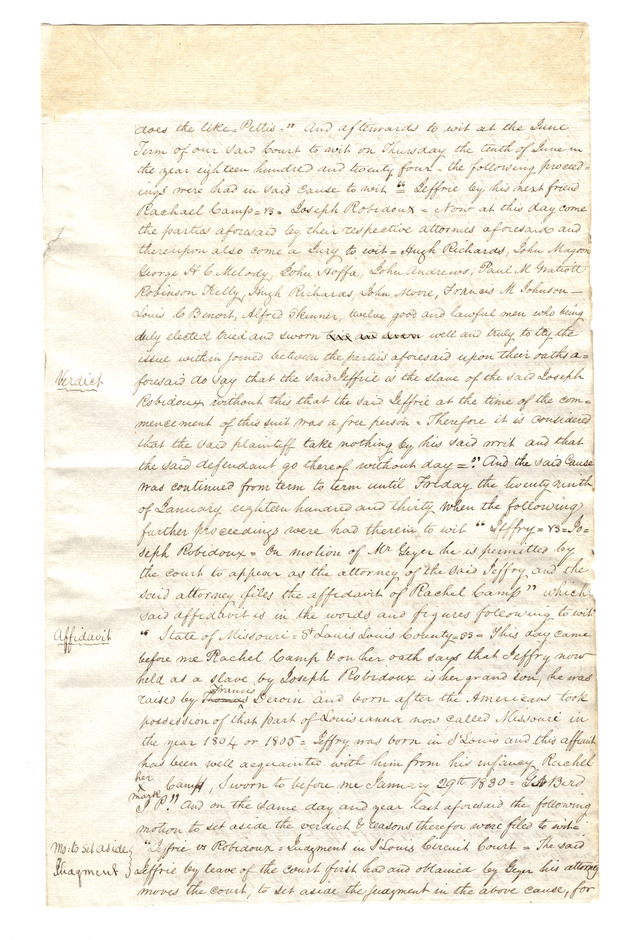 does the like - Pettis - " And afterwards to wit at the June
Term of our said Court to wit on Thursday the tenth of June in
the year eighteen hundred and twenty four - the following proceed=
ings were had in said cause to wit " Jeffrie by his next friend
Rachael Camp = vs = Joseph Robidoux = Now at this day come
the parties aforesaid by their respective attornies aforesaid and
thereupon also come a Jury to wit = Hugh Richards, John Majon
George H C Melody, John Hoffa, John Andrews, Paul M
Robinson Kelly, Hugh Richards, John Moore, Francis M Johnson -
Louis C Benoit, Alfred Skinner, twelve good and lawful men who being
duly elected tried and sworn well and truly to try the
issue within joined between the parties aforesaid upon their oaths a=
Verdict
foresaid do say that the said Jeffrie is the slave of the said Joseph
Robidoux without this that the said Jeffrie at the time of the com=
mencement of this suit was a free person - Therefore it is considered
that the said plaintiff take nothing by his said writ and that
the said defendant go thereof without day = " And the said cause
was continued from term to term until Friday the twenty ninth
of January eighteen hundred and thirty when the following
further proceedings were had therein to wit " Jeffry = vs = Jo=
seph Robidoux = On motion of Mr Geyer he is permitted by
the court to appear as the attorney of the said Jeffry and the
said attorney files the affidavit of Rachel Camp " which
said affidavit is in the words and figures following to wit
Affidavit
" State of Missouri = St Louis Louis County = SS = This day came
before me Rachel Camp & on her oath says that Jeffry now
held as a slave by Joseph Robidoux is her grand son, he was
raised by Thomas Francis Deroin and born after the Americans took
possession of that part of Louisianna now called Missouri in
the year 1804 or 1805 = Jeffry was born in St Louis and this affiant
has been well acquainted with him from his infancy, Rachel
her
x Camp, Sworn to before me January 29th 1830 = Bird
mark
J P. " And on the same day and year last aforesaid the following
motion to set aside the verdict & reasons therefor were filed to wit =
Mo: to set aside
Judgment
" Jeffrie vs Robidoux = Judgment in St Louis Circuit Court = The said
Jeffrie by leave of the court first had and obtained by Geyer his attorney
moves the court, to set aside the Judgment in the above cause, for